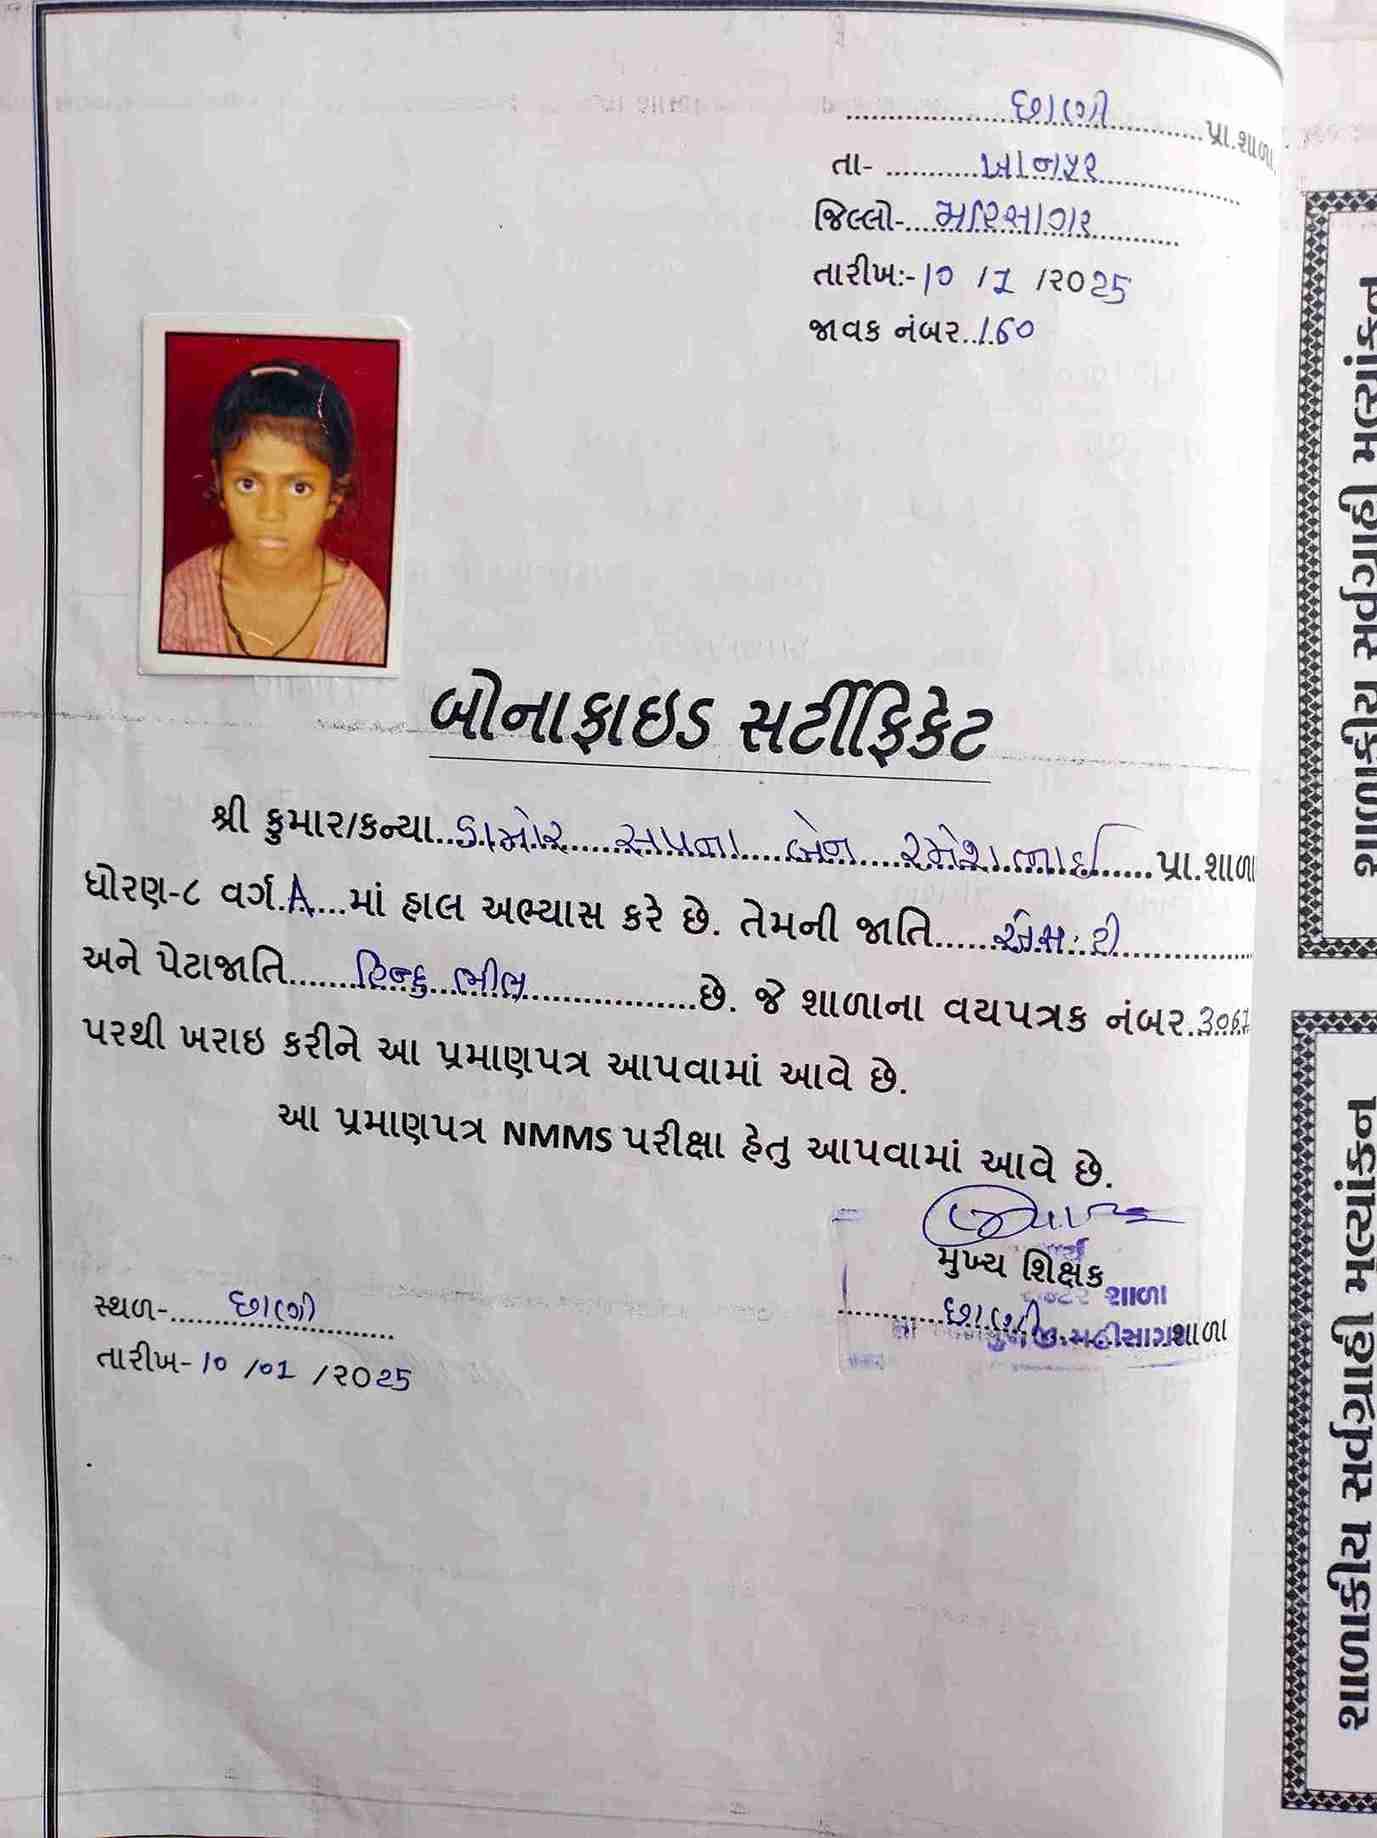 છાણી પ્રા.શાળા.
તા- ખાનપુર
જિલ્લો- મહિસાગર
તારીખ:- 10 / 1 /૨૦25
જાવક નંબર. 160
બોનાફાઇડ સર્ટીફિકેટ
શ્રી કુમાર/કન્યા ડામોર સપના બેન રમેશભાઈ પ્રા.શાળા
ધોરણ-૮ વર્ગ A માં હાલ અભ્યાસ કરે છે. તેમની જાતિ એસ.ટી
અને પેટાજાતિ હિન્દુ ભીલ છે. જે શાળાના વયપત્રક નંબર 3067
પરથી ખરાઇ કરીને આ પ્રમાણપત્ર આપવામાં આવે છે.
આ પ્રમાણપત્ર NMMS પરીક્ષા હેતુ આપવામાં આવે છે.
મુખ્ય શિક્ષક
શાળા
છાણી શાળા
જી.મહીસાગર
સ્થળ- છાણી
તારીખ- 10 /01 /૨૦25
શાળાકીય સર્વગ્રાહી મૂલ્યાંકન
શાળાકીય સર્વગ્રાહી મૂલ્યાંકન